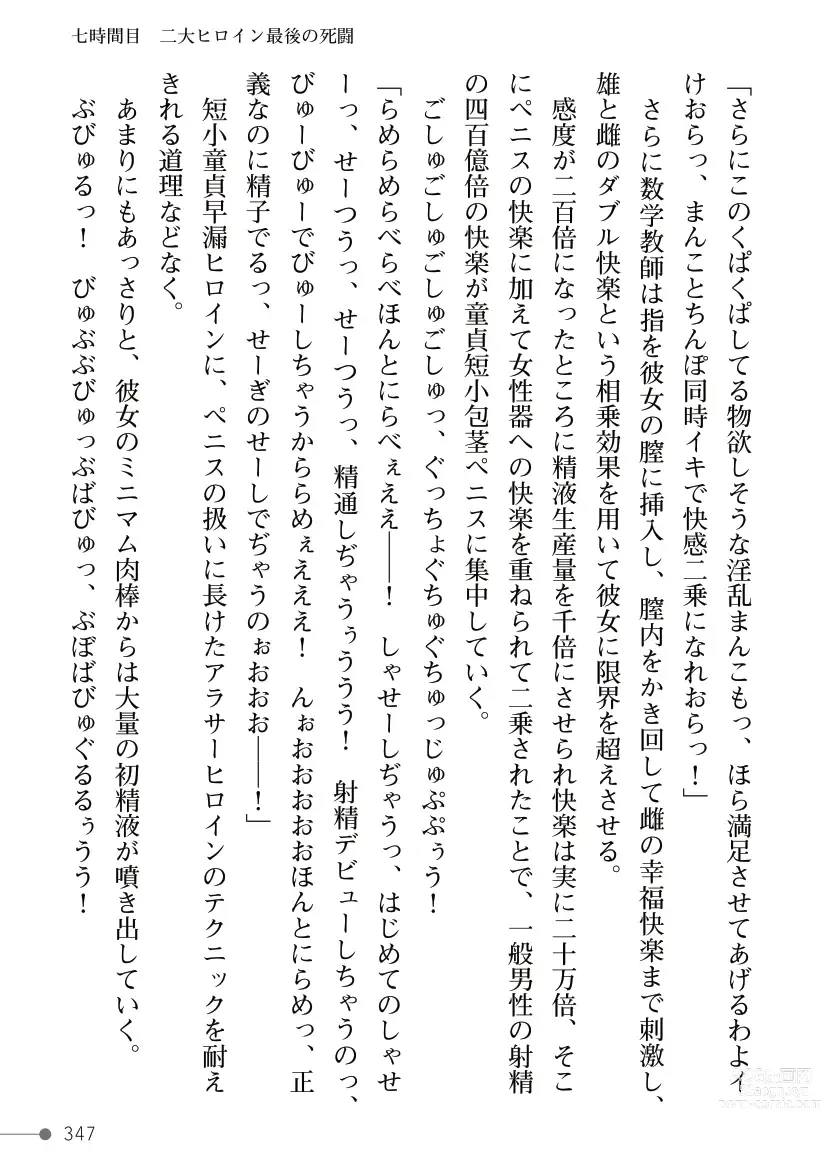 七時間目　二大ヒロイン最後の死闘
「さらにこのくぱくぱしてる物欲しそうな淫乱まんこもっ、ほら満足させてあげるわよィ
けおらっ、まんことちんぽ同時イキで快感二乗になれおらっ！」
さらに数学教師は指を彼女の膣に挿入し、膣内をかき回して雌の幸福快楽まで刺激し、
雄と雌のダブル快楽という相乗効果を用いて彼女に限界を超えさせる。
感度が二百倍になったところに精液生産量を千倍にさせられ快楽は実に二十万倍、そこ
にペニスの快楽に加えて女性器への快楽を重ねられて二乗されたことで、一般男性の射精
の四百億倍の快楽が童貞短小包茎ペニスに集中していく。
ごしゅごしゅごしゅごしゅっ、ぐっちょぐちゅぐちゅっじゅぷぷぅう！
「らめらめらべらべほんとにらべぇええ――！　しゃせーしぢゃうっ、はじめてのしゃせ
ーっ、せーつうっ、せーつうっ、精通しぢゃうぅううう！　射精デビューしちゃうのっ、
びゅーびゅーでびゅーしちゃうかららめぇえええ！　んぉおおおおおほんとにらめっ、正
義なのに精子でるっ、せーぎのせーしでぢゃうのぉおおお――！」
短小童貞早漏ヒロインに、ペニスの扱いに長けたアラサーヒロインのテクニックを耐え
きれる道理などなく。
あまりにもあっさりと、彼女のミニマム肉棒からは大量の初精液が噴き出していく。
ぶびゅるっ！　びゅぶぶびゅっぶばびゅっ、ぶぼばびゅぐるるぅうう！
347